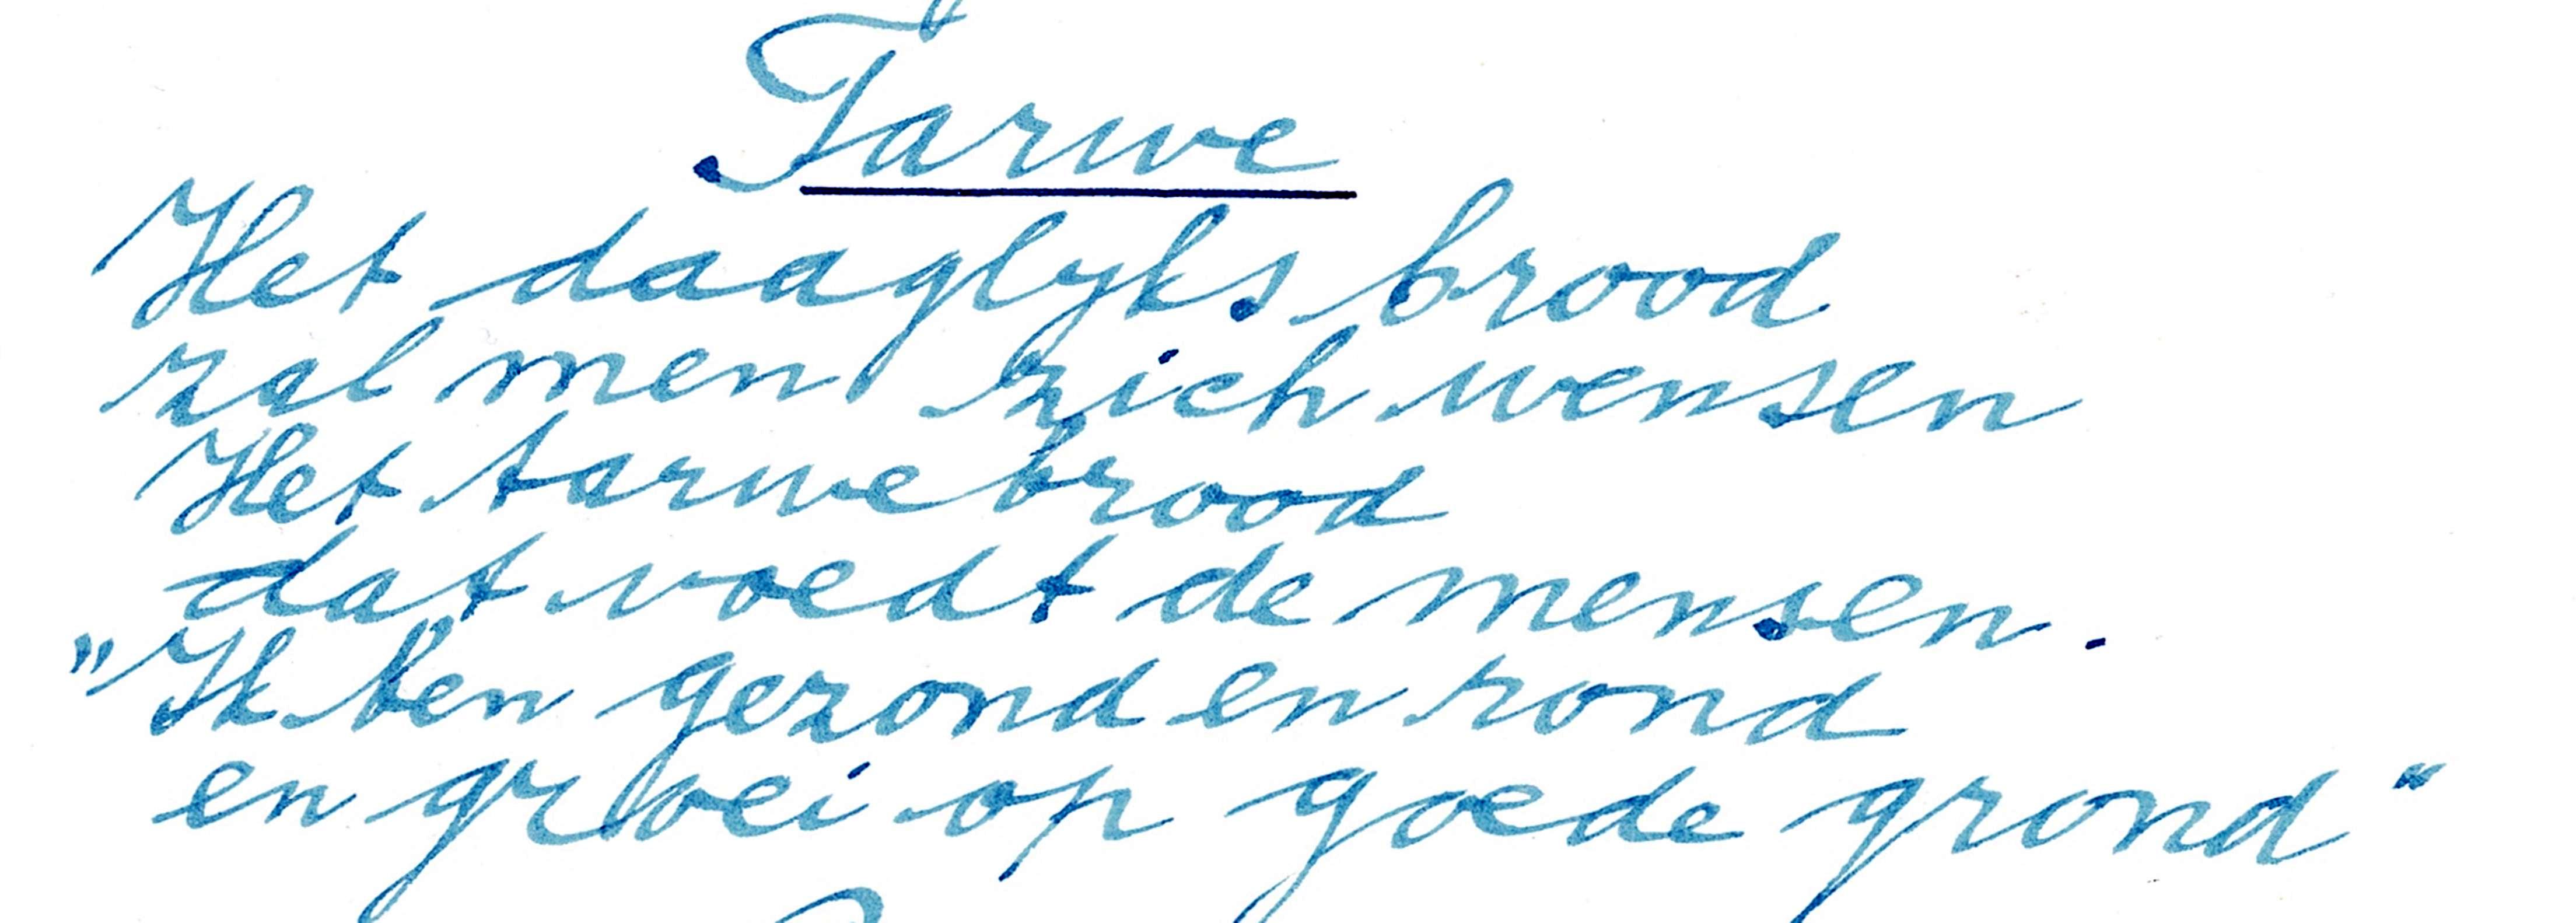 Tarwe
Het daaglyks brood
zal men zich wensen
Het tarwebrood
dat voedt de mensen.
„Ik ben gezond en rond
en groei op goede grond“